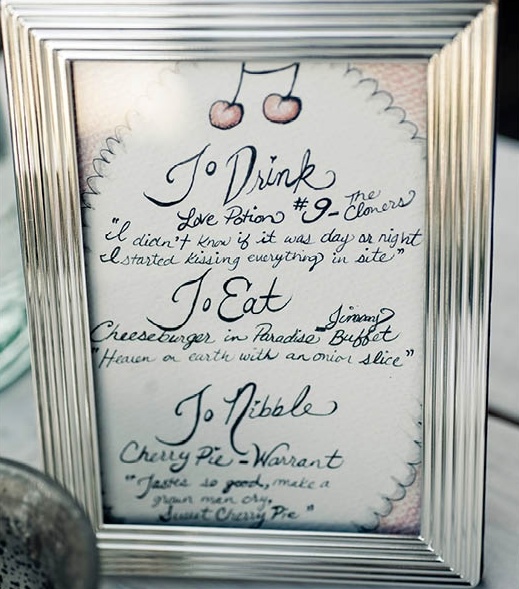 To Drink
Love Potion #9 - The Cloners
"I didn't know if it was day or night
I started kissing everything in site"
To Eat
Cheeseburger in Paradise - Jimmy Buffet
"Heaven on earth with an onion slice"
To Nibble
Cherry Pie - Warrant
"Tastes so good, make a
grown man cry,
Sweet Cherry Pie"